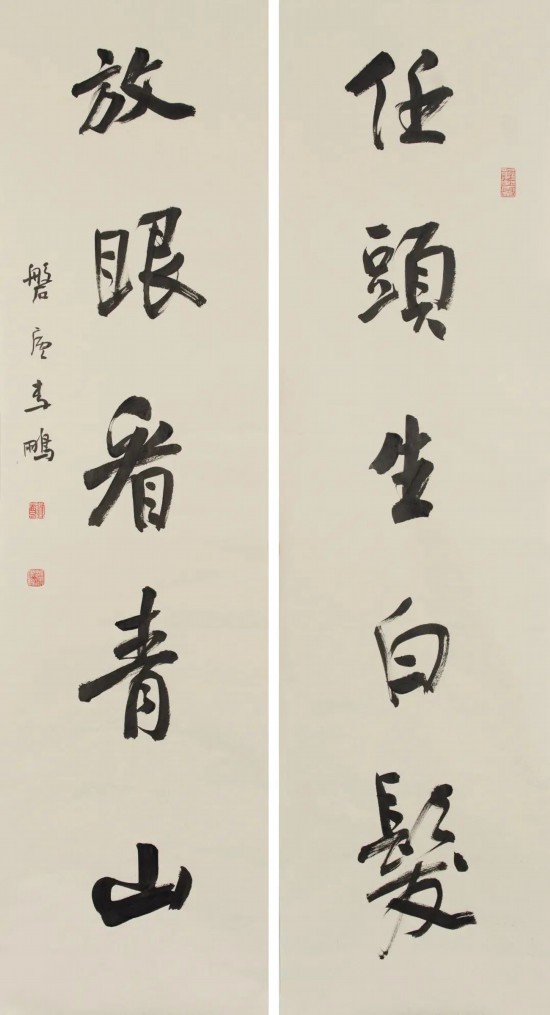 任頭生白髮
放眼看青山
磐廬李鵬